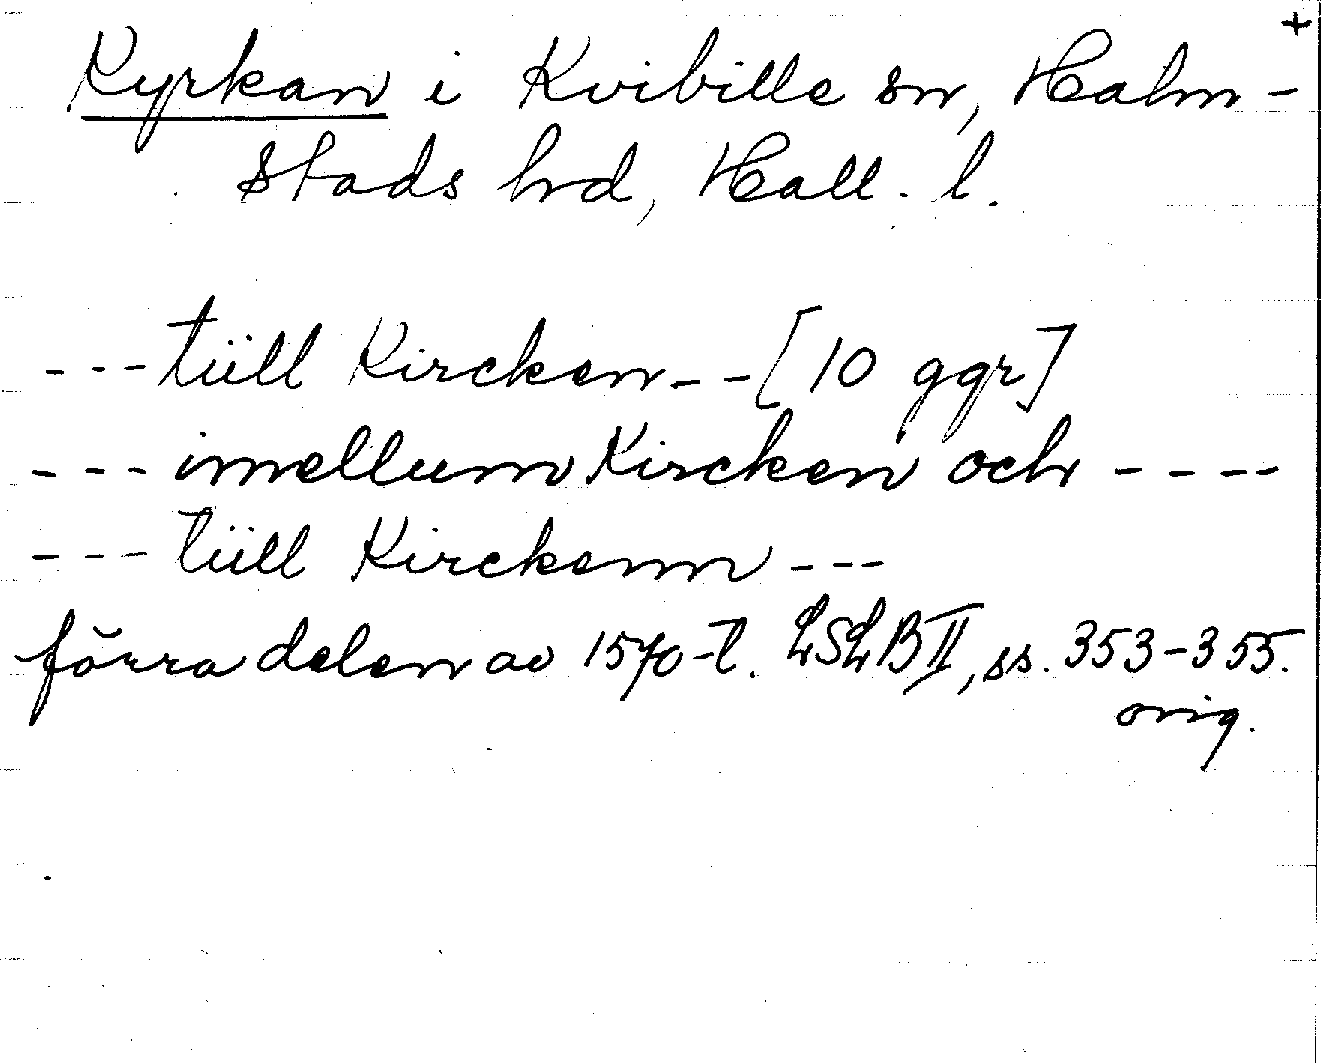 +
Kyrkan i Kvibille sn, Halm-
stads hrd, Hall. l.
---tüll Kircken--[10 ggr]
---imellum Kircken och ----
---tüll Kirckenn ---
förra delen av 1570-t. LSLB II, ss. 353-355.
orig.